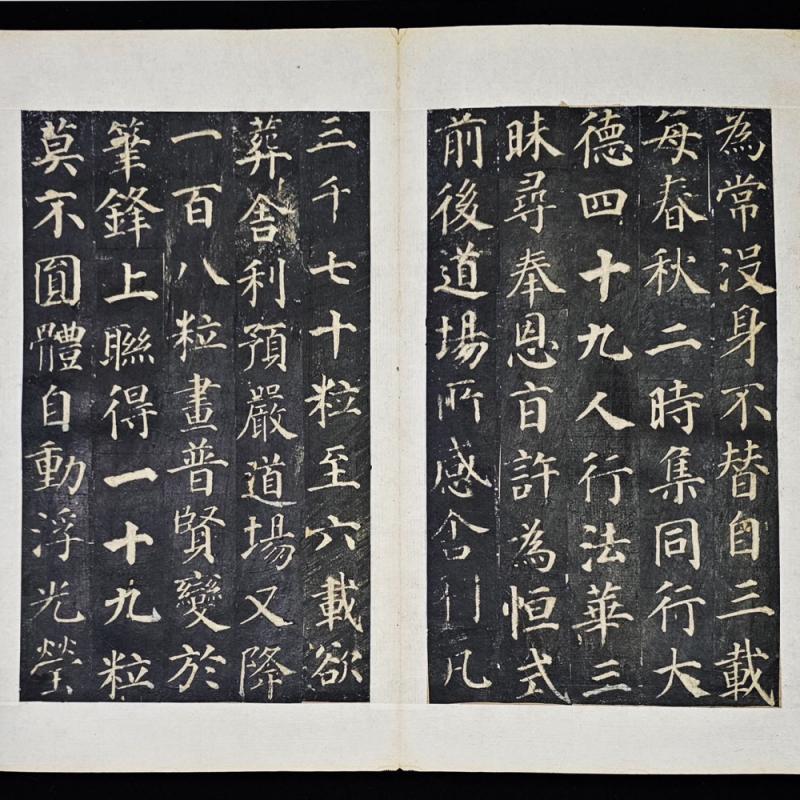 為常没身不替自三載
每春秋二時集同行大
德四十九人行法華三
昧尋奉恩㫖許為恒式
前後道場所感舍利凡
三千七十粒至六載欲
葬舍利預嚴道場又降
一百八粒畫普賢變於
筆鋒上聮得一十九粒
莫不圎體自動浮光瑩